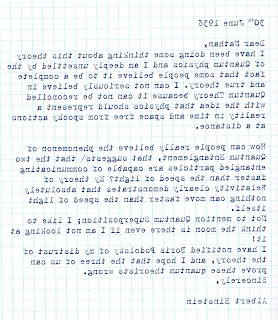 30th June 1936
Dear Nathan,
I have been doing some thinking about this theory
of Quantum Physics and I am deeply unsettled by the
fact that some people believe it to be a complete
and true theory. I can not seriously believe in
Quantum Theory because it can not be reconciled
with the idea that physics should represent a
reality in time and space free from spooky actions
at a distance.
How can people really believe the phenomenon of
Quantum Entanglement, that suggests\ that the two
entangled particles are capable of communicating
faster than the speed of light? My theory of
Relativity clearly demonstrates that absolutely
nothing can move faster than the speed of light
itself.
Not to mention Quantum Superposition; I like to
think the moon is there even if I am not looking at
it!
I have notified Boris Podolsky of my distrust of
the theory, and I hope that the three of us can
prove these quantum theorists wrong.
Sincerely,
Albert Einstein